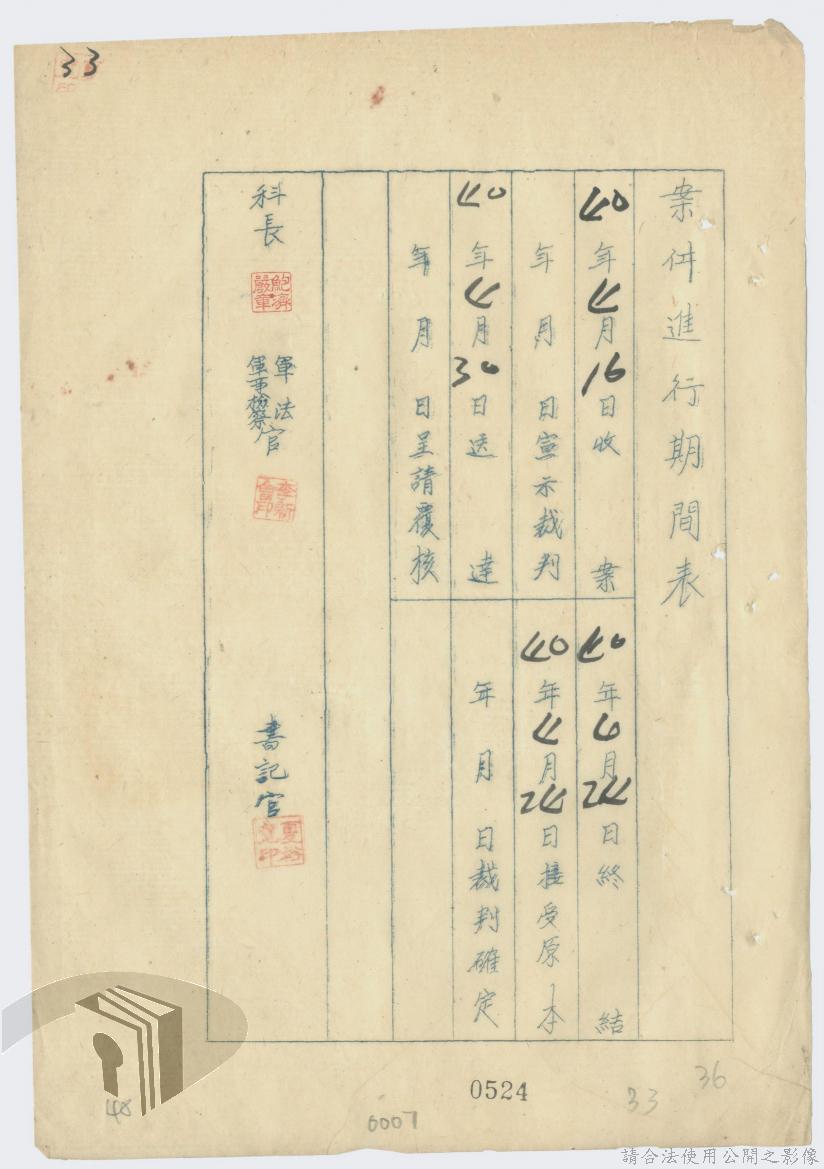 33
案件進行期間表
40年4月16日收案
40年6月24日終結
年月日宣示裁判
40年4月24日接受原本
40年4月30日送達
年月日裁判確定
年月日呈請覆核
科長
鮑濟嚴章
軍法官
軍事檢察官
書記官
0524
0007
33
36
48
請合法使用公開之影像